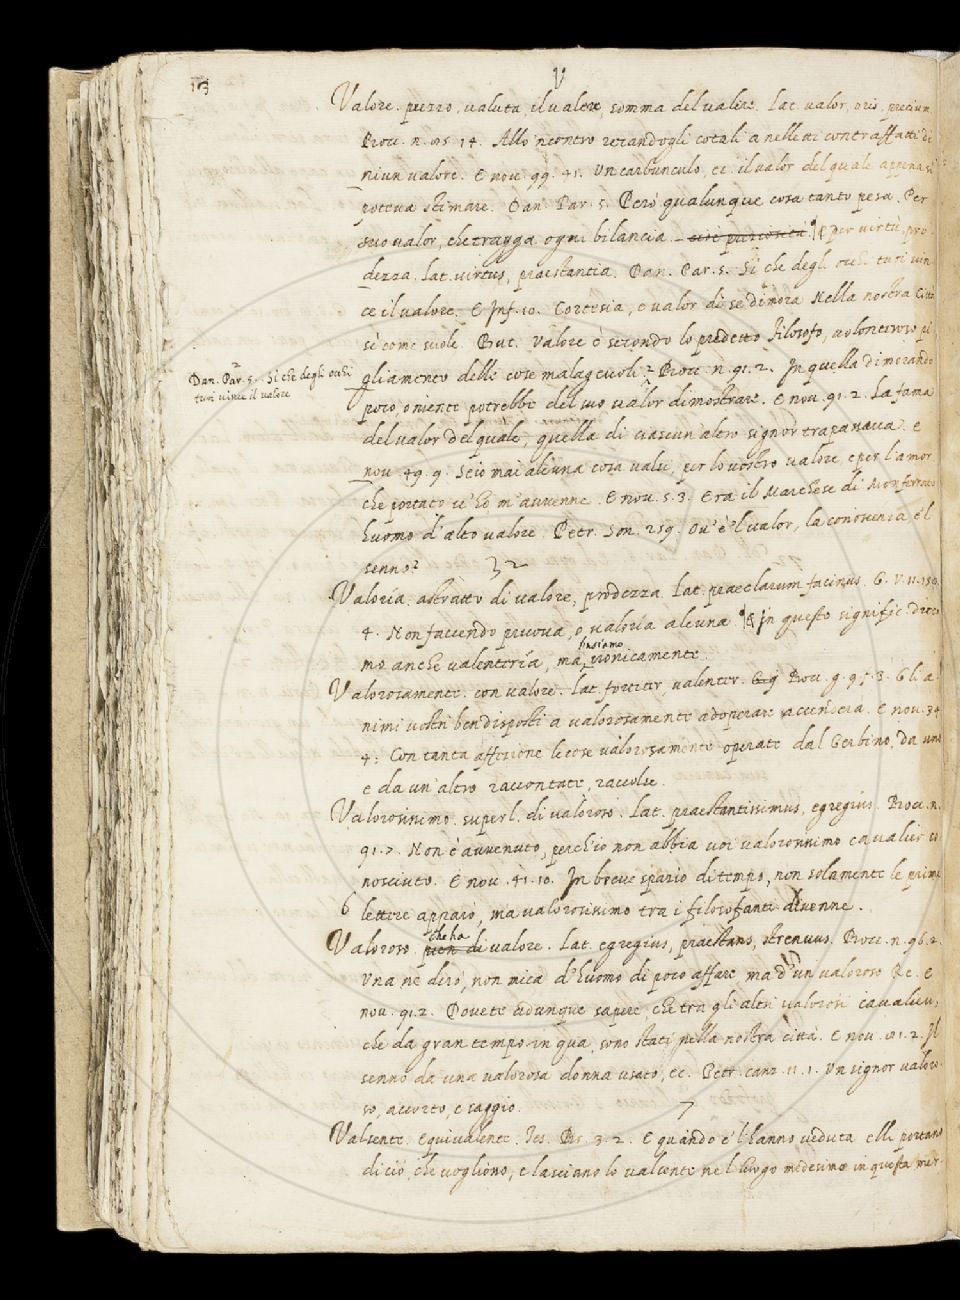 V
Valore. prezzo, valuta, il valere, somma del valere. Lat. valor, oris, precium
Bocc. n. 14. All' incontro recandogli cotali anelletti contraffatti di
niun valore. E nov. 99. 41. Un carbunculo, ec. il valor del quale appena si
poteva stimare. Dan. Par. 5. Però qualunque cosa tanto pesa Per
suo valor, che tragga ogni bilancia. per virtù, pro
dezza. Lat. virtus, praestantia. Dan. Par. 5. Sì che degli occhi tuoi vin
ce il valore. E Inf. 10. Cortesia, e valor di se dimora Nella nostra Città
sì come suole. But. Valore è secondo lo predetto Filosofo, volonteroso pi
Dan. Par. 5. Sì che degli occhi
tuoi vince il valore
gliamento delle cose malagevoli. Bocc. n. 91. 2. In quella dimorando
poco, o niente potrebbe del suo valor dimostrare. E nov. 91. 2. La fama
del valor del quale, quella di ciascun altro signor trapassava. E
nov. 49. 9. Se io mai alcuna cosa valsi, per lo vostro valore, e per l'amor
che portato v' ho m' avvenne. E nov. 5. 3. Era il Marchese di Monferrato
huomo d' alto valore. Petr. Son. 259. Ov' è 'l valor, la conoscenza, e 'l
senno?
Valoría. astratto di valore, prodezza. Lat. praeclarum facinus. G. V. 11.
4. Non faccendo pruova, o valoría alcuna in questo signific. dicia
mo anche valentería, ma ironicamente.
Valorosamente. con valore. Lat. fortiter, valenter. Bocc. g. 9. f. 3. Gli a
nimi vostri ben disposti a valorosamente adoperare accenderà. E nov. 34
4. Con tanta affezione le cose valorosamente operate dal Gerbino, da uno
e da un' altro raccontate, raccolse.
Valorosissimo. superl. di valoroso. Lat. praestantissimus, egregius. Bocc. n.
91. 7. Non è avvenuto, perch' io non abbia voi valorosissimo cavalier co
nosciuto. E nov. 41. 10. In breve spazio di tempo, non solamente le prime
6 lettere apparò, ma valorosissimo tra i filosofanti divenne.
che ha
Valoroso pien di valore. Lat. egregius, praestans, strenuus. Bocc. n. 96. 2.
Una ne dirò, non mica d' huomo di poco affare ma d' un valoroso Re. E
nov. 91. 2. Dovete adunque sapere, che tra gli altri valorosi cavalieri,
che da gran tempo in qua, sono stati nella nostra città. E nov. 101. 2. Il
senno da una valorosa donna usato, ec. Petr. canz. 11. 1. Un signor valoro
so, accorto, e saggio.
7
Valsente. Equivalente. Tes. Br. 3. 2. E quando e' l' hanno veduta elli portano
di ciò, che vogliono, e lasciano lo valsente nel luogo medesimo in questa mer